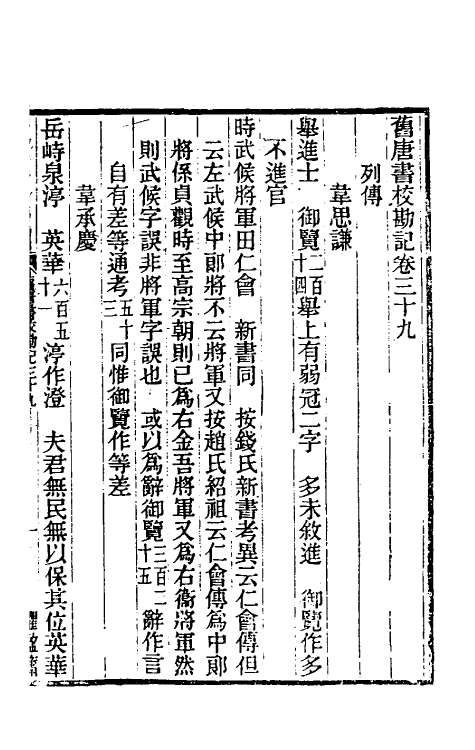 舊唐書校勘記卷三十九
列傳
韋思謙
舉進士 御覽二百十四舉上有弱冠二字 多未敘進 御覽作多
不進官
時武候將軍田仁會 新書同 按錢氏新書考異云仁會傳但
云左武候中郞將不云將軍又按趙氏紹祖云仁會傳爲中郞
將係貞觀時至高宗朝則已爲右金吾將軍又爲右衞將軍然
則武候字誤非將軍字誤也 或以爲辭御覽三百二十五辭作言
自有差等通考五十三同惟御覽作等差
韋承慶
岳峙泉渟 英華六百五十一渟作澄 夫君無民無以保其位英華